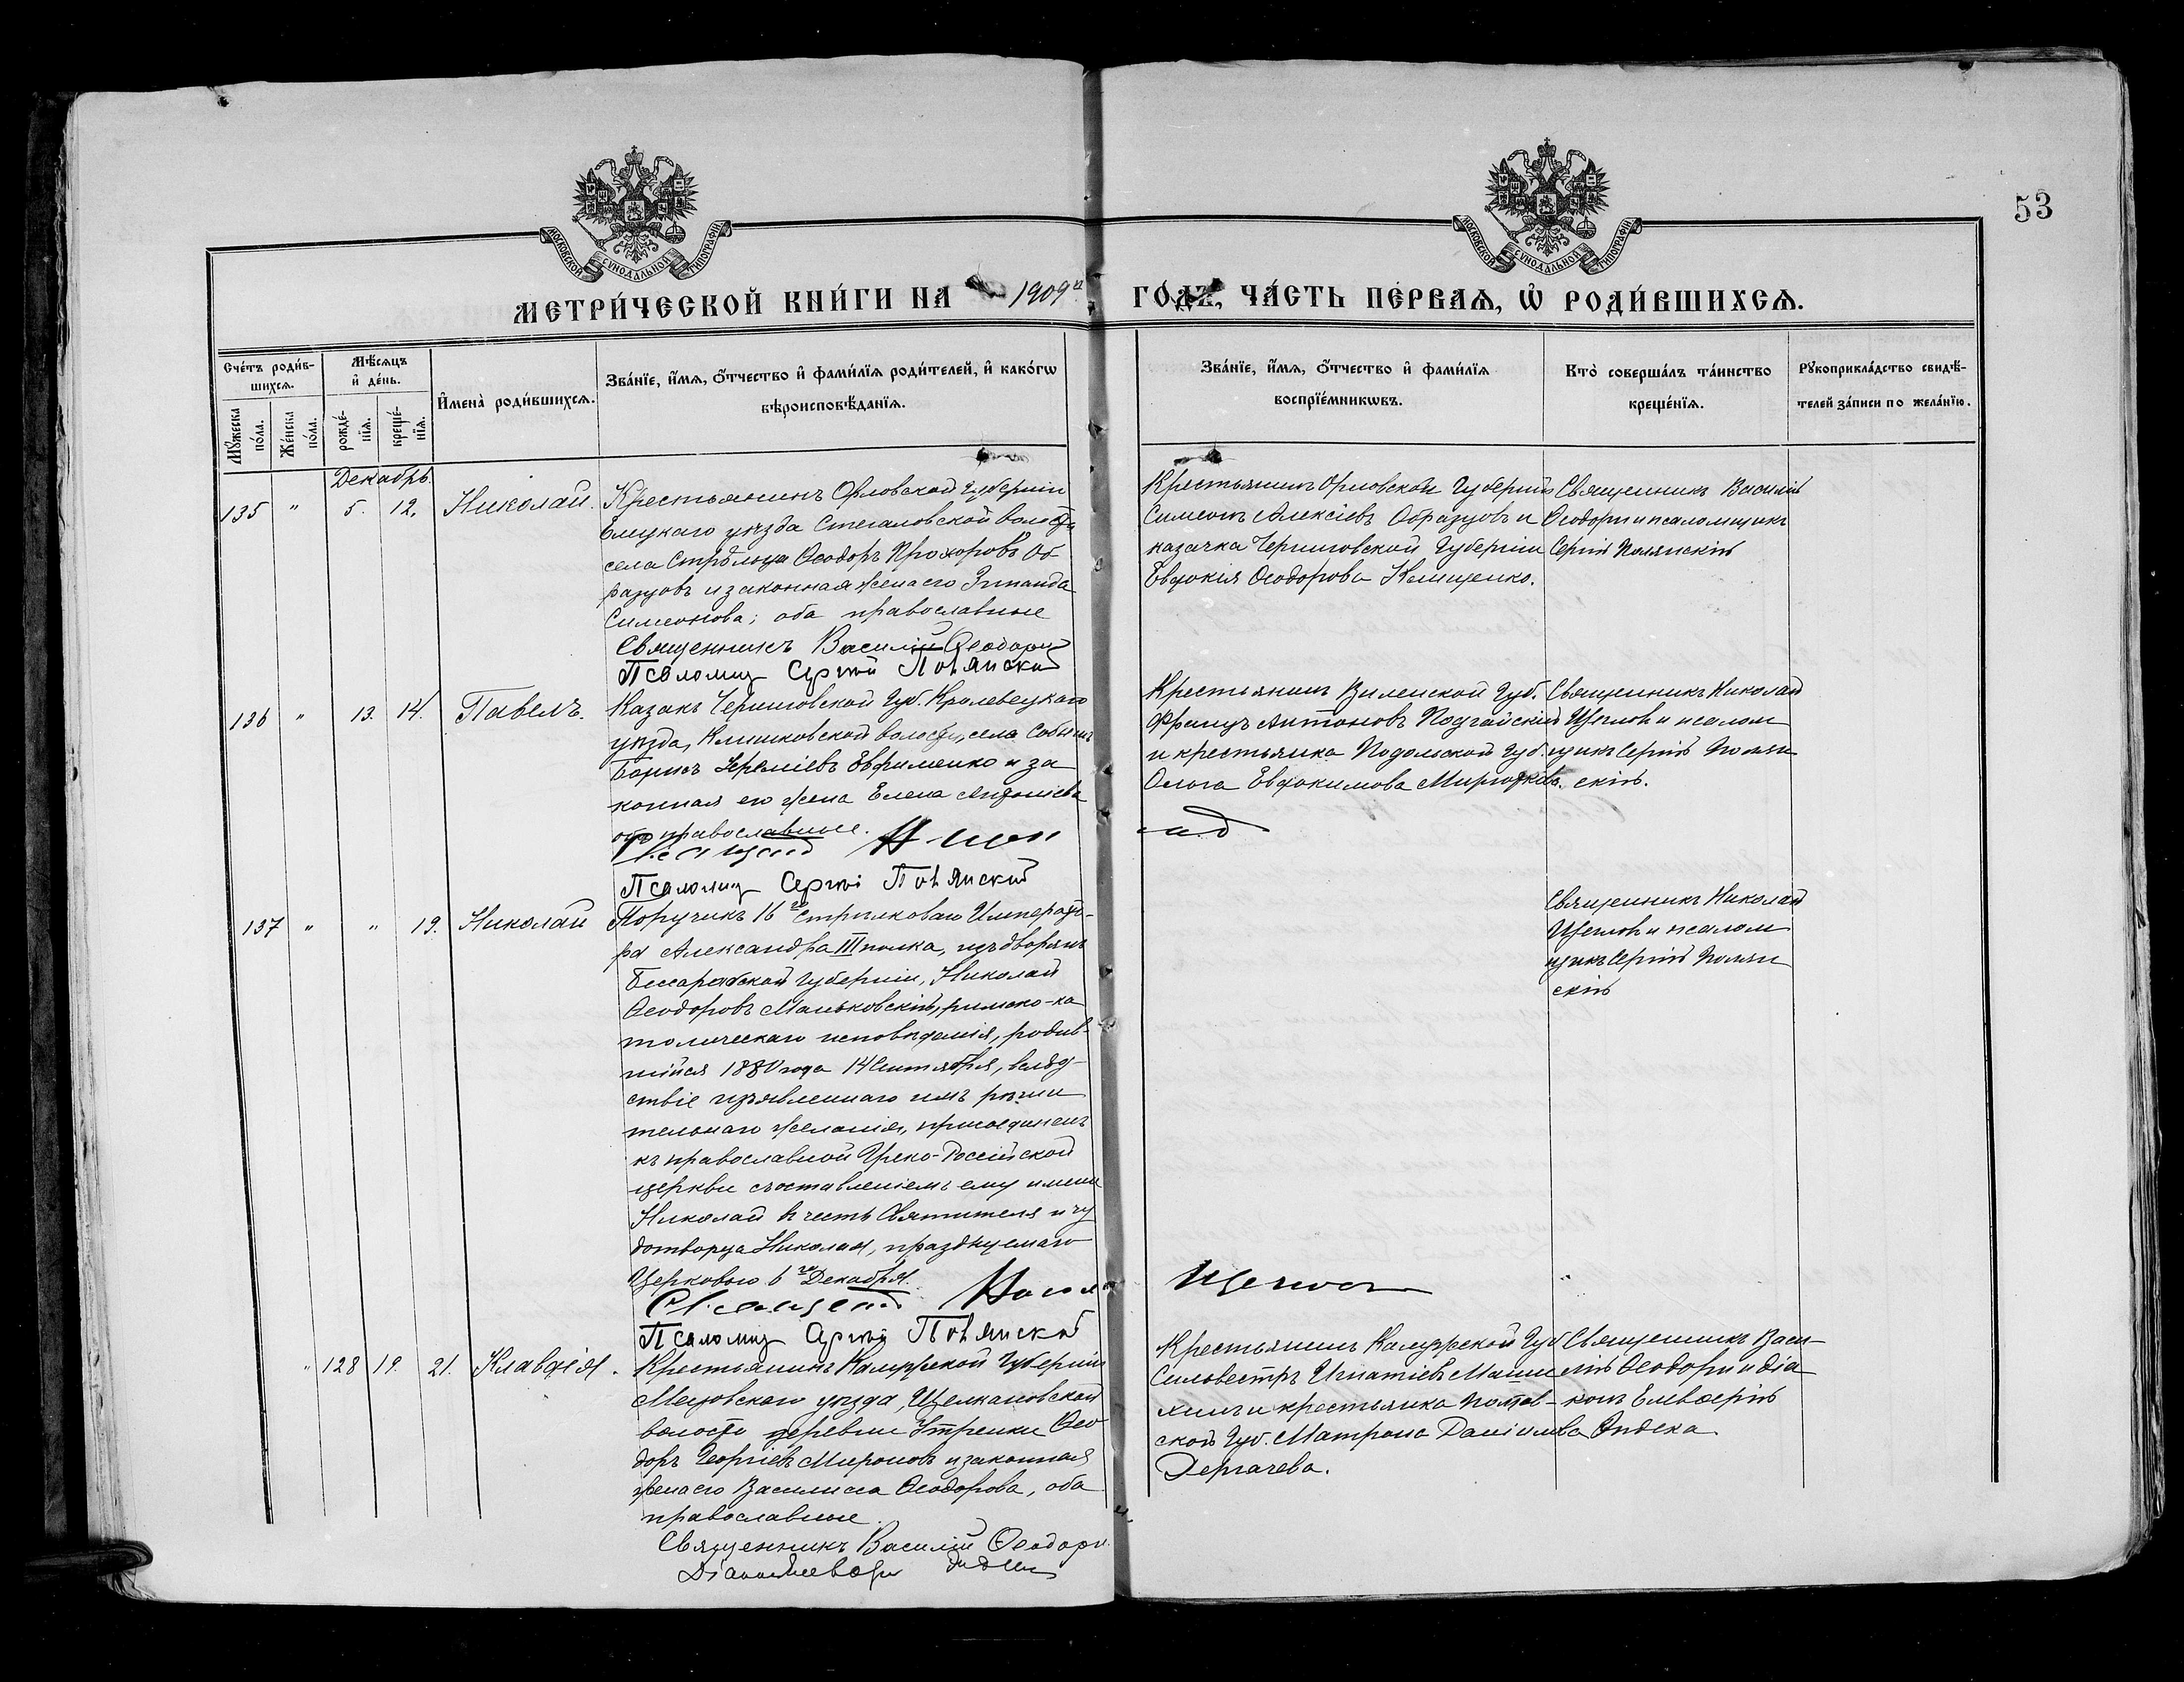 53
МОСКОВСКОЙ СѴНОДАЛЬНОЙ ТИПОГРАФІИ
МОСКОВСКОЙ СѴНОДАЛЬНОЙ ТИПОГРАФІИ
МЕТРИ́ЧЕСКОЙ КНИ́ГИ НА 1909й ГОДЪ, ЧА́СТЬ ПЕ́РВАЯ, Ѡ РОДИ́ВШИХСЯ.
Сче́тъ роди́в-
шихся.
Мꙋ́жеска по́ла.
Же́нска по́ла.
Мѣ́сяцъ
и де́нь.
рожде́-
нїя.
креще́-
нїя.
Имена̀ роди́вшихся.
Зва́нїе, и́мя, о́тчество и фами́лїя роди́телей, и како́гѡ
вѣроисповѣ́данїя.
Зва́нїе, и́мя, о́тчество и фами́лїя
воспрїе́мникѡвъ.
Кто̀ соверша́лъ та́инство
креще́нїя.
Рꙋкоприкла́дство свидѣ́-
телей за́писи по жела́нїю.
Декабрь.
135 " 5. 12. Николай.
Крестьянинъ Орловской Губерніи
Елецкаго уѣзда Стегаловской волости
села Стрѣльца Ѳеодоръ Прохоровъ Об-
разцовъ и законная жена его Зинаида
Симеонова; оба православные
Священникъ Василій Ѳеодори
Псаломщ Сергій Полянскій
Крестьянинъ Орловской Губерніи
Симеонъ Алексіевъ Образцовъ и
казачка Черниговской Губерніи
Евдокія Ѳеодорова Клищенко.
Священникъ Василій
Ѳеодори и псаломщикъ
Сергій Полянскій
136 " 13. 14. Павелъ.
Казакъ Черниговской Губ. Кролевецкаго
уѣзда, Клишковской волости, села
Борисъ Іереміевъ Евфименко и за
конная его жена Елена
оба православные.
Псаломщ Сергій Полянскій
Крестьянинъ Виленской Губ.
Францъ Антоновъ Подгайскій
и крестьянка Подольской Губ.
Ольга Евдокимова
Священникъ Николай
Щегловъ и псалом
щикъ Сергій Полян
скій.
137 " " 19. Николай
Поручикъ 16го Стрѣлковаго Императо-
ра Александра III полка, изъ дворянъ
Бессарабской Губерніи, Николай
Ѳеодоровъ Маньковскій, римско-ка
толическаго исповѣданія, родив-
шійся 1880 года 14 Сентября, вслѣд-
ствіе изъявленнаго имъ рѣши
тельнаго желанія, присоединенъ
къ православной Греко-Россійской
церкви съ оставленіемъ ему имени
Николай въ честь Святителя и чу
дотворца Николая, празднуемаго
Церковью 6го Декабря.
Псаломщ Сергій Полянскій
Священникъ Николай
Щегловъ и псалом
щикъ Сергій Полян
скій
" 128 19. 21. Клавдія.
Крестьянинъ Калужской Губерніи
Мещовскаго уѣзда, Щелкановской
волости деревни Утренки Ѳео
доръ Георгіевъ Мироновъ и законная
жена его Василисса Ѳеодорова, оба
православные.
Священникъ Василій Ѳеодори
Крестьянинъ Калужской Губ
Сильвестръ Игнатіевъ
и крестьянка Полтав-
ской Губ. Матрона Даніилова
Дергачева.
Священникъ Васи-
лій Ѳеодори и діа
конъ Елевѳерій